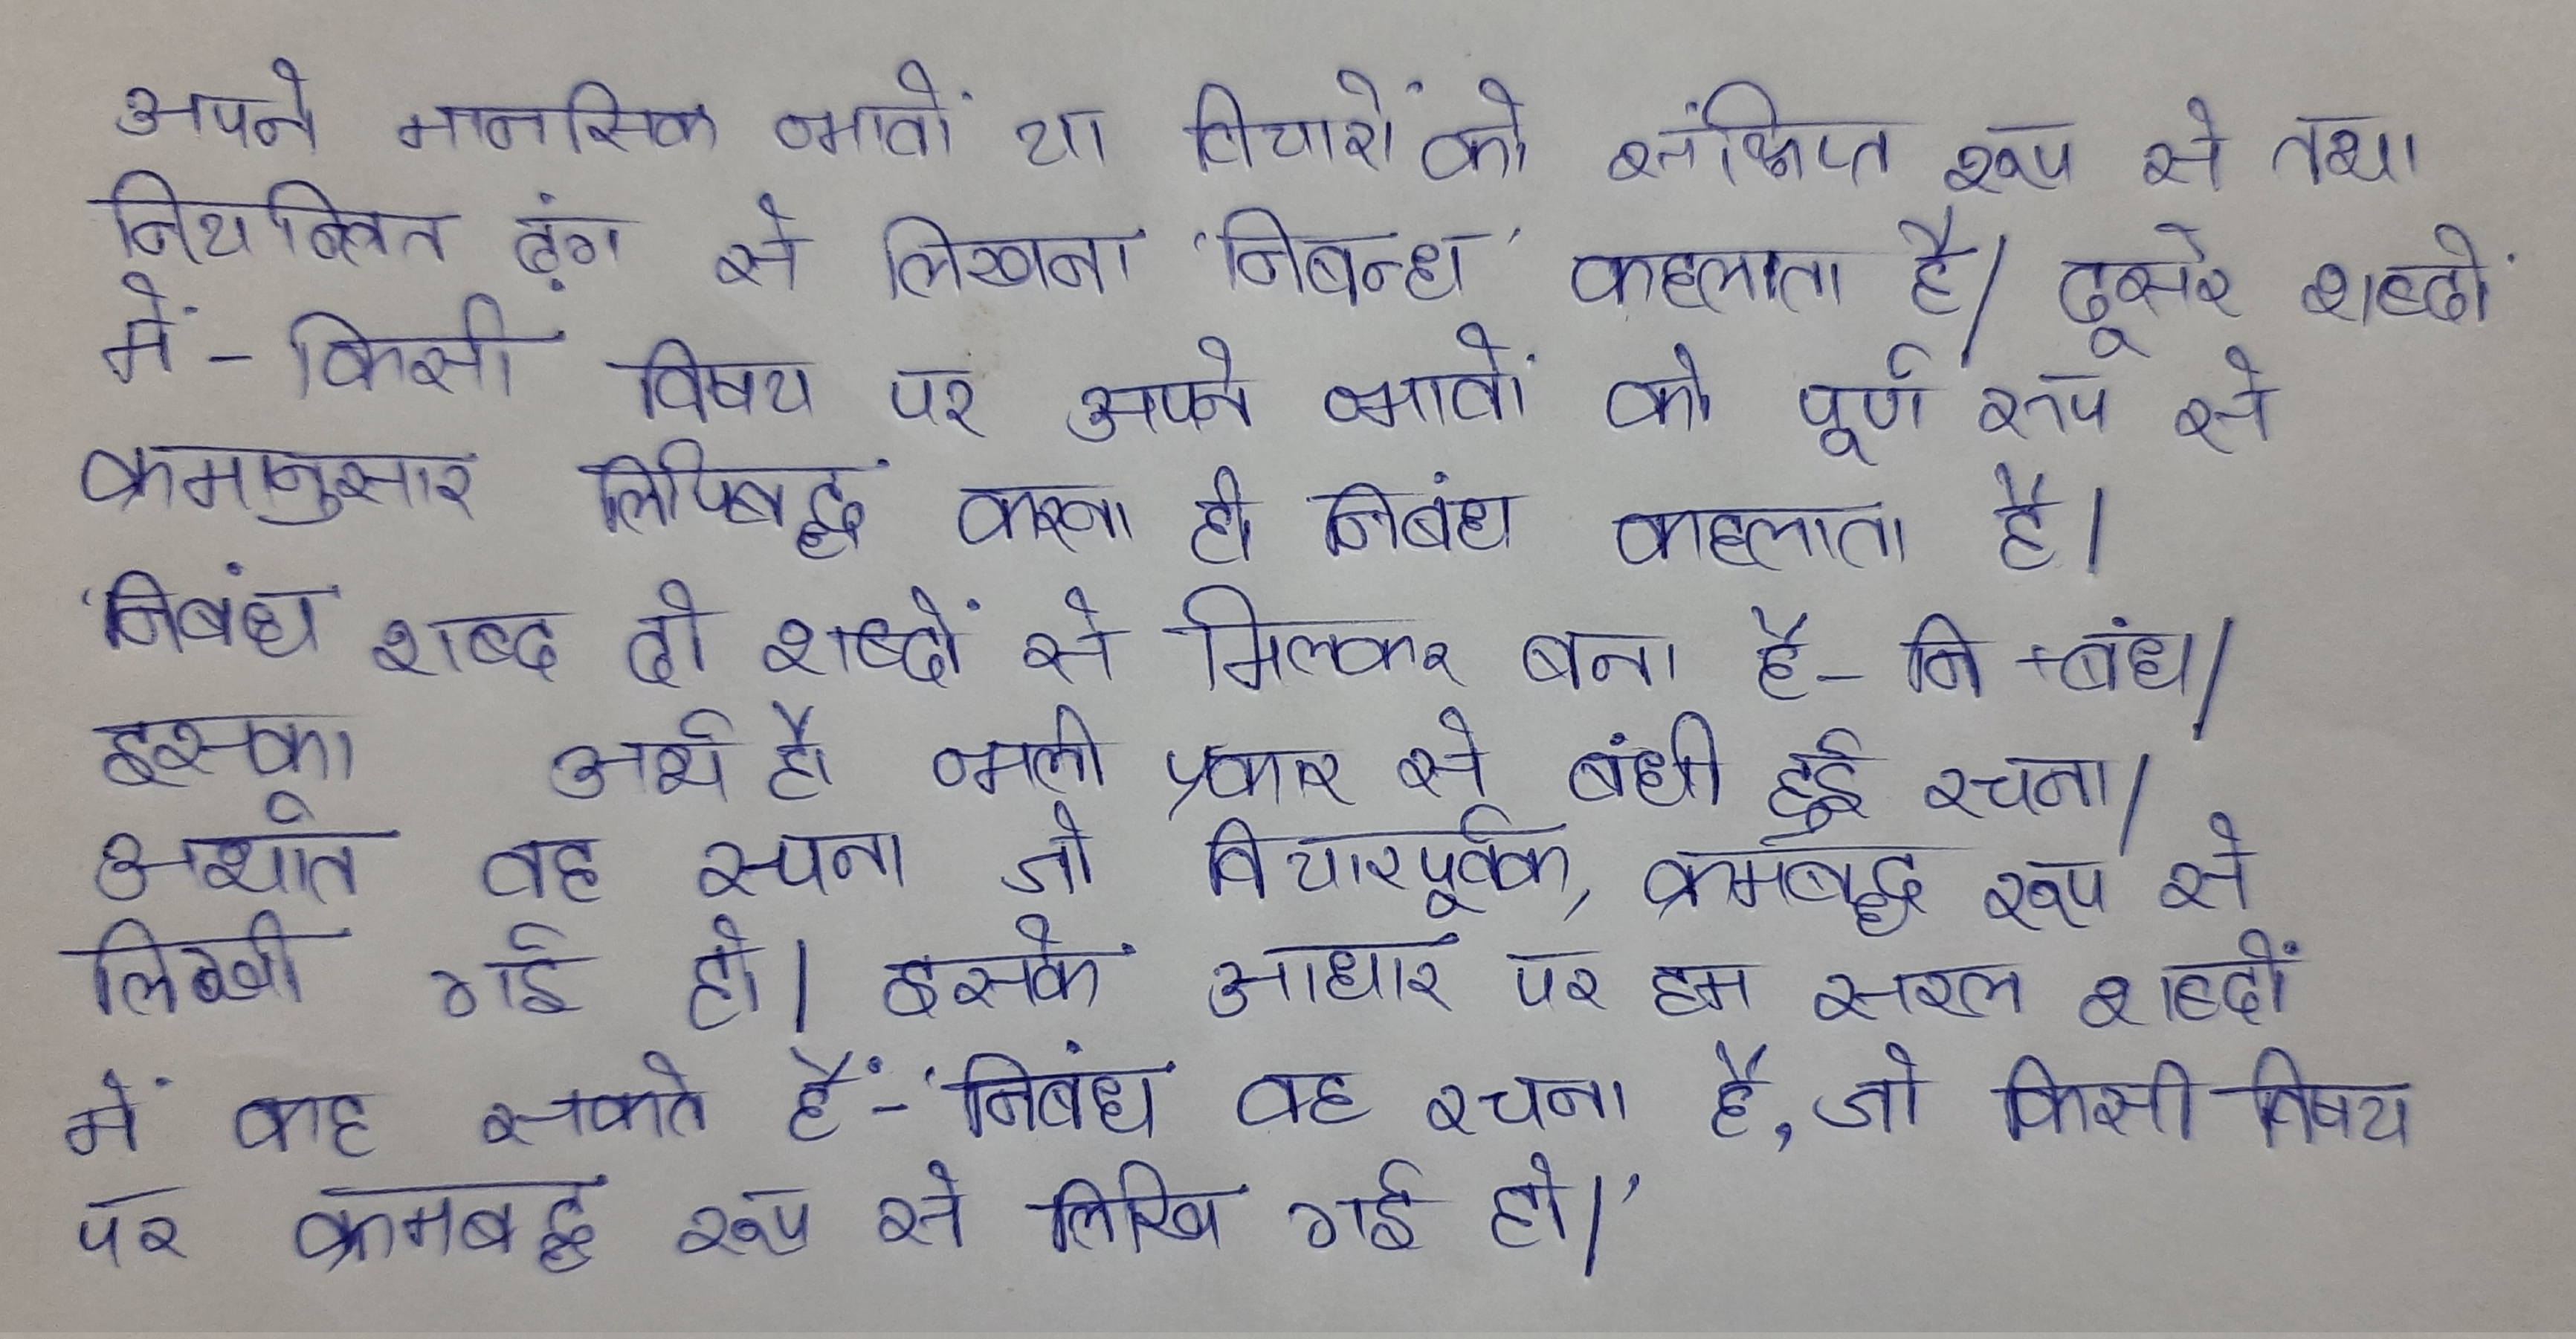 अपने मानसिक भावों या विचारों को संक्षिप्त रूप से तथा
नियन्त्रित ढ़ंग से लिखना 'निबन्ध' कहलाता है। दूसरे शब्दों
में - किसी विषय पर अपने भावों को पूर्ण रूप से
क्रमानुसार लिपिबद्ध करना ही निबंध कहलाता है।
'निबंध शब्द दो शब्दों से मिलकर बना है- नि +बंध।
इसका अर्थ है भली प्रकार से बंधी हुई रचना।
अर्थात वह रचना जो विचारपूर्वक, क्रमबद्ध रूप से
लिखी गई हो। इसके आधार पर हम सरल शब्दों
में कह सकते हैं-'निबंध वह रचना है, जो किसी विषय
पर क्रमबद्ध रूप से लिखि गई हो।'